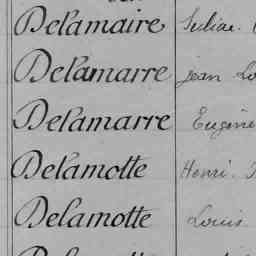 Delamaire Suliac.
Delamarre Jean
Delamarre Eugène
Delamotte Henri.
Delamotte Louis